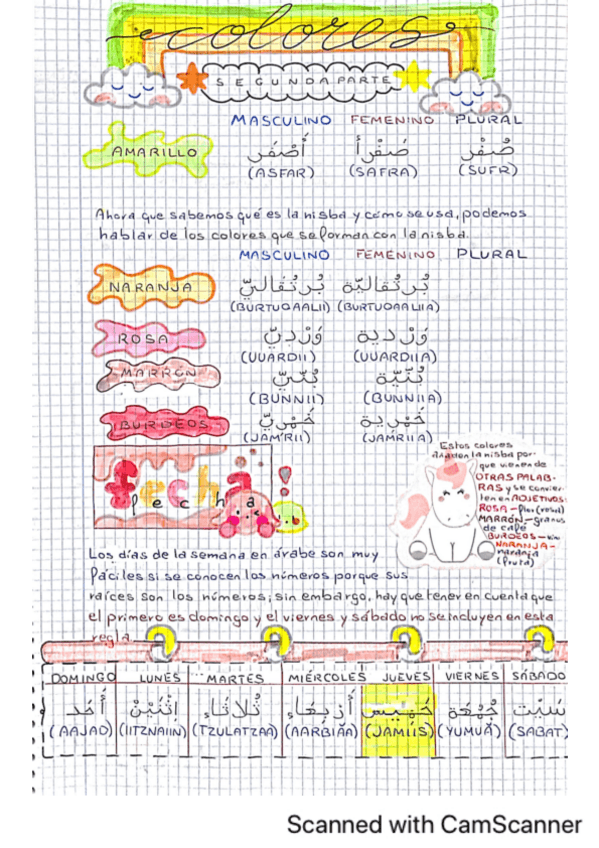 colores
SEGUNDA PARTE
MASCULINO FEMENINO PLURAL
AMARILLO أَصْفَر صَفْرأ صُفْر
(ASFAR) (SAFRA) (SUFR)
Ahora que sabemos qué es la nisba y cómo se usa, podemos
hablar de los colores que se forman con la nisba.
MASCULINO FEMENINO PLURAL
NARANJA بُرتُقاليّ بُرتُقاليّة
(BURTUQAALII) (BURTUQAALIIA)
ROSA وَرْديّ وَرْدية
(UUARDII) (UUARDIIA)
MARRÓN بُنّيّ بُنّيّة
(BUNNII) (BUNNIIA)
BURDEOS خَمْريّ خَمْرية
(JAMRII) (JAMRIIA)
Estos colores
añaden la nisba por-
que vienen de
OTRAS PALAB-
RAS y se convier-
ten en ADJETIVOS:
ROSA - flor (rosa)
MARRÓN - granos
de café
BURDEOS - vino
NARANJA -
naranja
(fruta)
fecha!
fecha
Los días de la semana en árabe son muy
fáciles si se conocen los números porque sus
raíces son los números; sin embargo, hay que tener en cuenta que
el primero es domingo y el viernes y sábado no se incluyen en esta
regla.
DOMINGO LUNES MARTES MIÉRCOLES JUEVES VIERNES SÁBADO
أَحَد اِثْنَيْن ثُلاثَاء أَرْبِعَاء خَميس جُمُعَة سَبْت
(AAJAD) (IITZNAIIN) (TZULATZAA) (AARBIÄA) (JAMIIS) (YUMUÄ) (SABAT)
Scanned with CamScanner